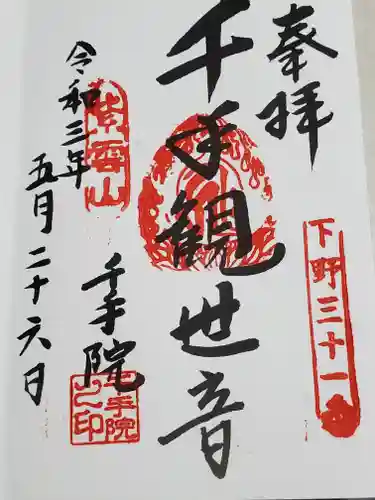 奉拝
下野三十一
千手観世音
紫雲山
千手院
千手院之印
令和三年
五月二十六日